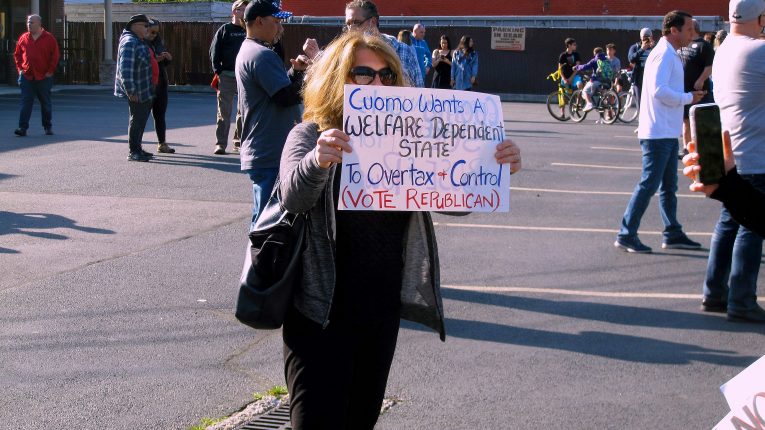 PARKING
IN REAR
Cuomo Wants A
Welfare Dependent
State
To Overtax & Control
(Vote Republican)
NO